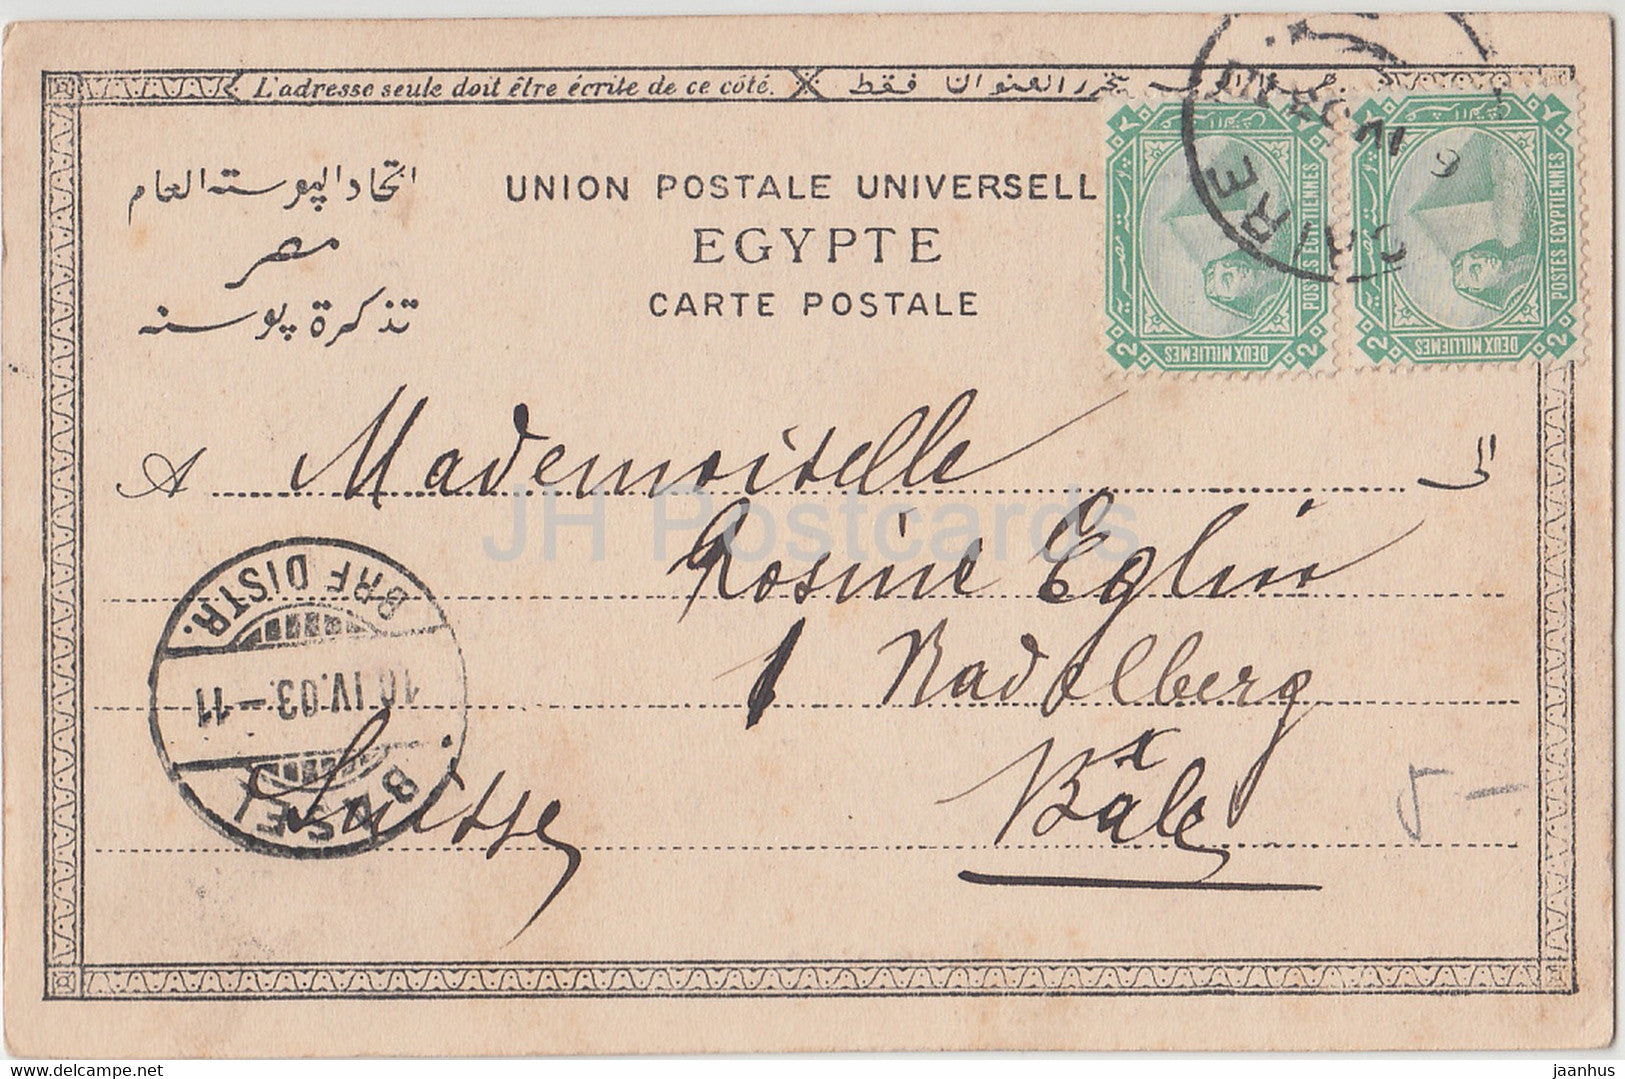 L'adresse seule doit être écrite de ce côté.
يحرر العنوان فقط
اتحاد البوسته العام
UNION POSTALE UNIVERSELL
مصر
EGYPTE
تذكرة بوسته
CARTE POSTALE
POSTES EGYPTIENNES
2 DEUX MILLIEMES 2
POSTES EGYPTIENNES
2 DEUX MILLIEMES 2
CAIRE
A Mademoiselle الى
JH Postcards
Rosine Eglin
1 Nadelberg
Bâle
Suisse
BASEL
10.IV.03.-11
BRF DISTR.
delcampe.net
jaanhus